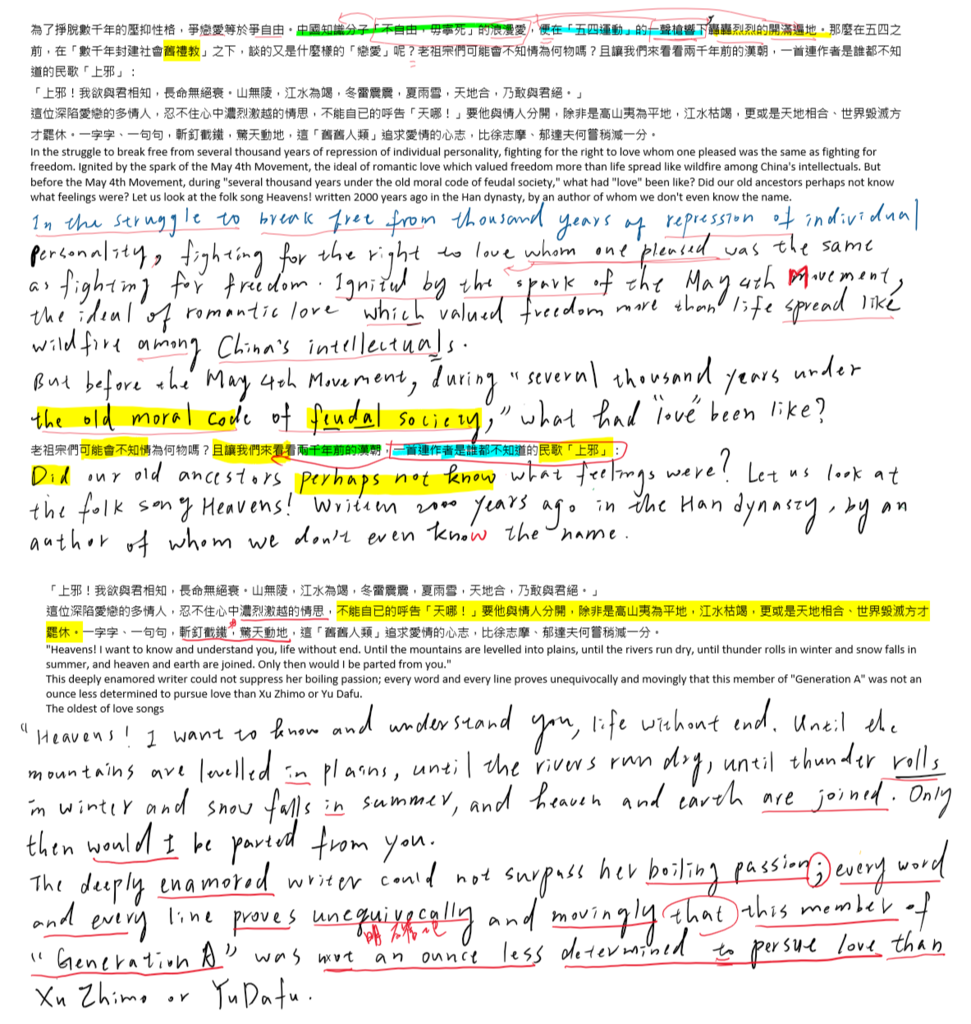 為了掙脫數千年的壓抑性格，爭戀愛等於爭自由。中國知識分子「不自由，毋寧死」的浪漫愛，便在「五四運動」的一聲槍響下轟轟烈烈的開滿遍地。那麼在五四之
前，在「數千年封建社會舊禮教」之下，談的又是什麼樣的「戀愛」呢？老祖宗們可能會不知情為何物嗎？且讓我們來看看兩千年前的漢朝，一首連作者是誰都不知
道的民歌「上邪」：
「上邪！我欲與君相知，長命無絕衰。山無陵，江水為竭，冬雷震震，夏雨雪，天地合，乃敢與君絕。」
這位深陷愛戀的多情人，忍不住心中濃烈激越的情思，不能自已的呼告「天哪！」要他與情人分開，除非是高山夷為平地，江水枯竭，更或是天地相合、世界毀滅方
才罷休。一字字、一句句，斬釘截鐵，驚天動地，這「舊舊人類」追求愛情的心志，比徐志摩、郁達夫何嘗稍減一分。
In the struggle to break free from several thousand years of repression of individual personality, fighting for the right to love whom one pleased was the same as fighting for
freedom. Ignited by the spark of the May 4th Movement, the ideal of romantic love which valued freedom more than life spread like wildfire among China's intellectuals. But
before the May 4th Movement, during "several thousand years under the old moral code of feudal society," what had "love" been like? Did our old ancestors perhaps not know
what feelings were? Let us look at the folk song Heavens! written 2000 years ago in the Han dynasty, by an author of whom we don't even know the name.
In the struggle to break free from thousand years of repression of individual
personality, fighting for the right to love whom one pleased was the same
as fighting for freedom. Ignited by the spark of the May 4th Movement,
the ideal of romantic love which valued freedom more than life spread like
wildfire among China's intellectuals.
But before the May 4th Movement, during "several thousand years under
the old moral code of feudal society," what had "love" been like?
老祖宗們可能會不知情為何物嗎？且讓我們來看看兩千年前的漢朝，一首連作者是誰都不知道的民歌「上邪」：
Did our old ancestors perhaps not know what feelings were? Let us look at
the folk song Heavens! Written 2000 years ago in the Han dynasty, by an
author of whom we don't even know the name.
「上邪！我欲與君相知，長命無絕衰。山無陵，江水為竭，冬雷震震，夏雨雪，天地合，乃敢與君絕。」
這位深陷愛戀的多情人，忍不住心中濃烈激越的情思，不能自已的呼告「天哪！」要他與情人分開，除非是高山夷為平地，江水枯竭，更或是天地相合、世界毀滅方才
罷休。一字字、一句句，斬釘截鐵，驚天動地，這「舊舊人類」追求愛情的心志，比徐志摩、郁達夫何嘗稍減一分。
"Heavens! I want to know and understand you, life without end. Until the mountains are levelled into plains, until the rivers run dry, until thunder rolls in winter and snow falls in
summer, and heaven and earth are joined. Only then would I be parted from you."
This deeply enamored writer could not suppress her boiling passion; every word and every line proves unequivocally and movingly that this member of "Generation A" was not an
ounce less determined to pursue love than Xu Zhimo or Yu Dafu.
The oldest of love songs
"Heavens! I want to know and understand you, life without end. Until the
mountains are levelled in plains, until the rivers run dry, until thunder rolls
in winter and snow falls in summer, and heaven and earth are joined. Only
then would I be parted from you.
The deeply enamored writer could not surpass her boiling passion; every word
and every line proves unequivocally and movingly that this member of
明確地
"Generation A" was not an ounce less determined to persue love than
Xu Zhimo or YuDafu.